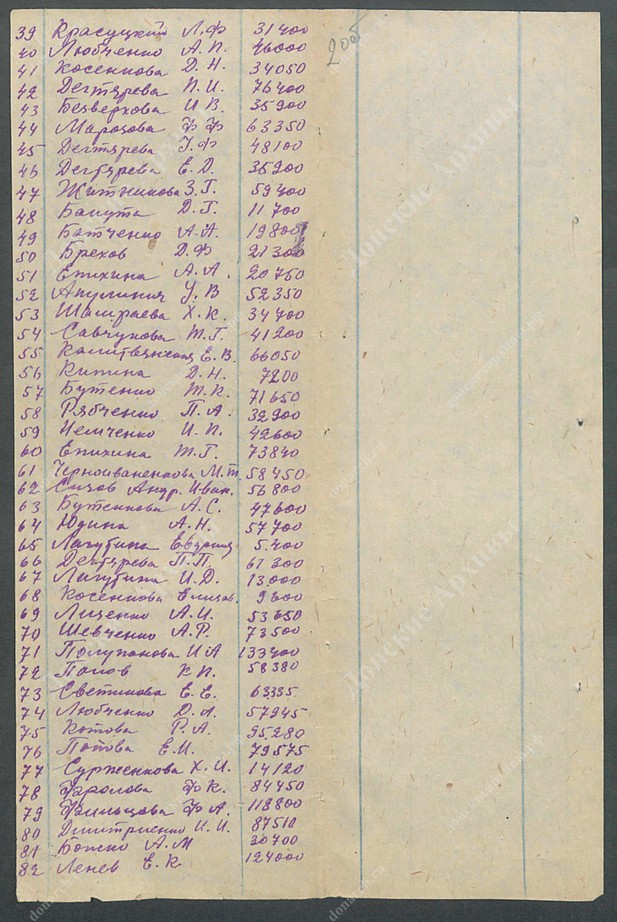 205
39 Красуцкий Л.Ф 31400
40 Любченко А.П. 46000
41 Косенкова Д.Н. 34050
42 Дегтярева П.И. 76400
43 Безверхова И В. 35200
44 Марозова Ф Ф 63350
45 Дегтярева Ф 48100
46 Дегтярева Е.Д. 35200
47 Житникова З.Г. 59400
48 Бапута Д.Г. 11700
49 Батченко А.А 19800
50 Брехов Д.Ф 21300
51 Епихина А.А. 20750
52 У.В 52350
53 Шамраева Х.К. 34700
54 Савчукова Т.Г. 41200
55 Е.В. 66050
56 Китина Д.Н. 7200
57 Бутенко Т.К. 71650
58 Рябченко П.А. 32900
59 Немченко И.П. 42600
60 Епихина Т.Г. 73840
61 Черноиваненкова М.Т. 58450
62 Сизов Андр. Иван. 56800
63 Бутенкова А.С. 47600
64 Юдина А.Н. 57700
65 Лагутина 5.400
66 Дегтярева П.П. 61200
67 Лагутина И.Д. 13000
68 Косенкова Елизав. 9600
69 Лиценко А.И. 53650
70 Шевченко А.Р. 73500
71 Полупанова И А 133400
72 Попов К П. 58380
73 Светикова Е.Е. 63335
74 Любченко Д.А. 57945
75 Котова Р.А. 95280
76 Попова Е.И. 79575
77 Сурженкова Х.И. 14120
78 Фролова Ф К. 84450
79 Фильцова Ф А. 118800
80 Дмитриенко И.И. 87510
81 Божко А.М 30700
82 Ленев Е.К 124000